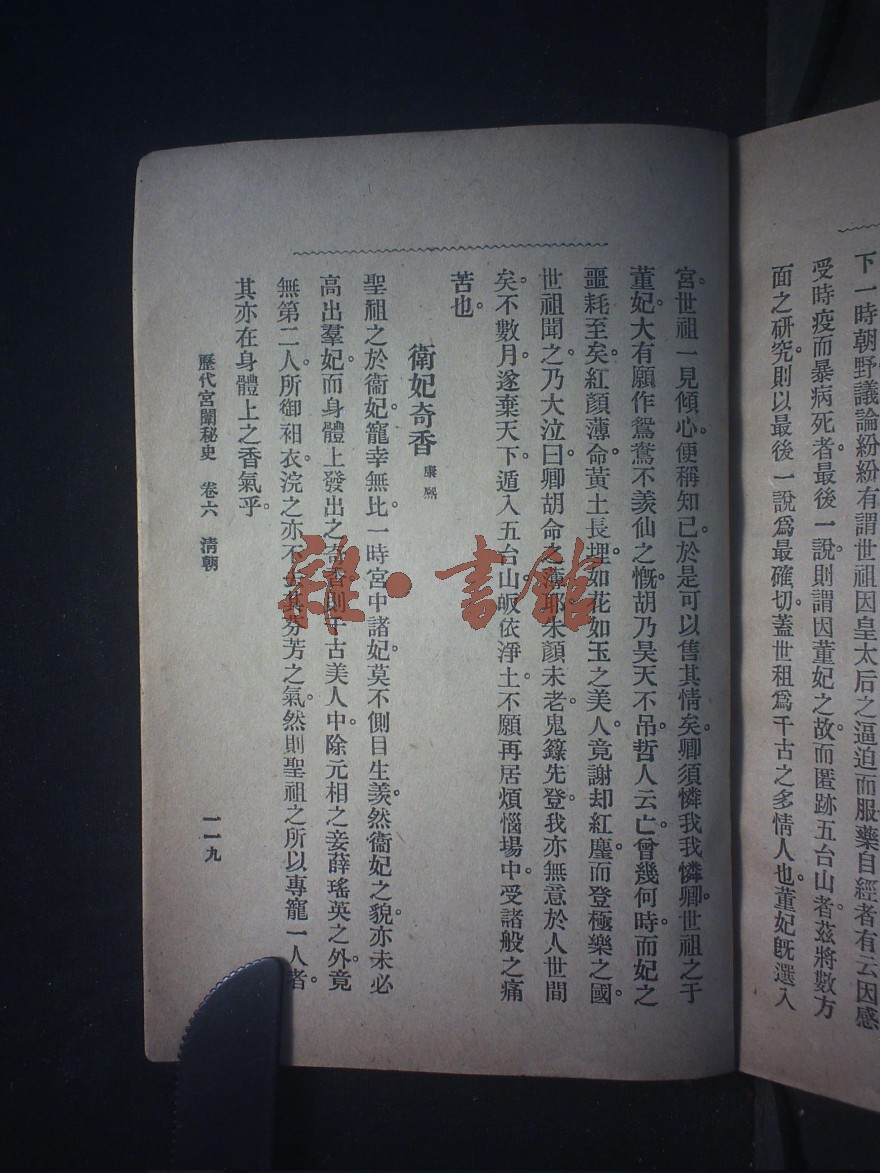 下一時朝野議論紛紛有謂世祖因皇太后之逼迫而服藥自經者有云因感
受時疫而暴病死者。最後一說則謂因董妃之故而匿跡五台山者茲將數方
面之研究則以最後一說爲最確切蓋世祖爲千古之多情人也。董妃既選入
宮。世祖一見傾心。便稱知己。於是可以售其情矣。卿須憐我我憐卿。世祖之于
董妃。大有願作鴛鴦不羨仙之慨。胡乃昊天不吊。哲人云亡。曾幾何時。而妃之
噩耗至矣。紅顏薄命。黃土長埋。如花如玉之美人。竟謝却紅塵。而登極樂之國。
世祖聞之。乃大泣曰。卿胡命之薄耶。朱顏未老。鬼籙先登。我亦無意於人世間
矣。不數月。遂棄天下。遁入五台山。皈依淨土。不願再居煩惱場中。受諸般之痛
苦也。
衛妃奇香 康熙
聖祖之於衛妃。寵幸無比。一時宮中諸妃。莫不側目生羨。然衛妃之貌。亦未必
高出羣妃。而身體上發出之奇香。則千古美人中。除元相之妾薛瑤英之外。竟
無第二人。所御衵衣。浣之亦不去其芬芳之氣。然則聖祖之所以專寵一人者。
其亦在身體上之香氣乎。
歷代宮闈秘史 卷六 清朝 一一九
雜·書館